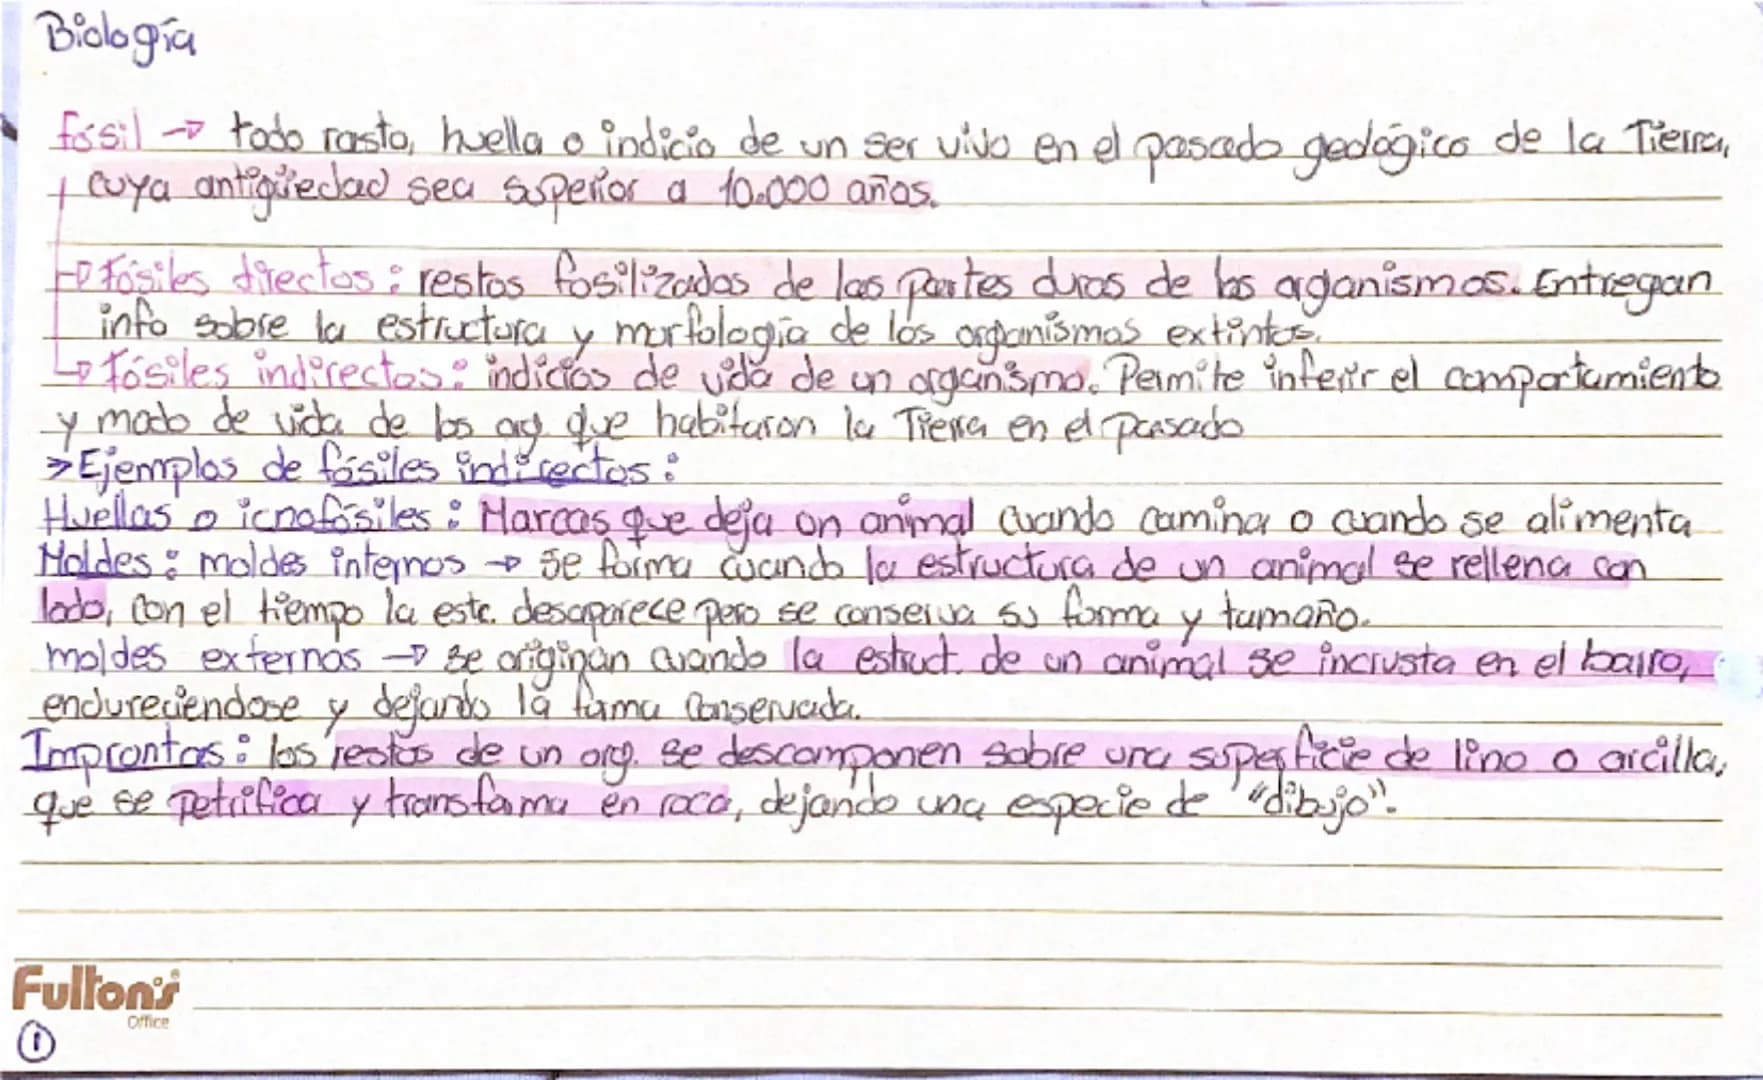 Biología
fósil → todo rasto, huella o indicio de un ser vivo en el pasado geológico de la Tierra,
cuya antigüedad sea superior a 10.000 años.
→ Fósiles directos: restos fosilizados de las partes duras de los organismos. Entregan
info sobre la estructura y morfología de los organismos extintos.
→ Fósiles indirectos: indicios de vida de un organismo. Permite inferir el comportamiento
y modo de vida de los org. que habitaron la Tierra en el pasado
» Ejemplos de fósiles indirectos:
Huellas o icnofósiles: Marcas que deja un animal cuando camina o cuando se alimenta
Moldes: moldes internos → se forma cuando la estructura de un animal se rellena con
lodo, con el tiempo la estc. desaparece pero se conserva su forma y tamaño.
moldes externos → se originan cuando la estruct. de un animal se incrusta en el barro,
endureciendose y dejando la forma conservada.
Improntas: los restos de un org. se descomponen sobre una superficie de lino o arcilla,
que se petrifica y transforma en roca, dejando una especie de "dibujo".
Fulton's
Office
1